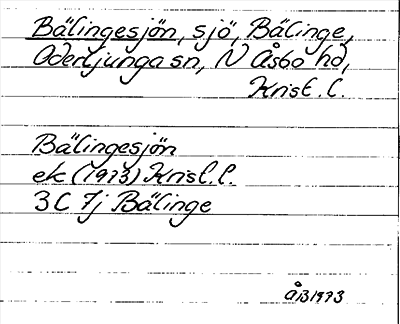 Bälingesjön, sjö, Bälinge,
Oderljunga sn, N Åsbo hd,
Krist. l.
Bälingesjön
ek (1973) Krisl. l.
3C 7j Bälinge
ÅB 1973